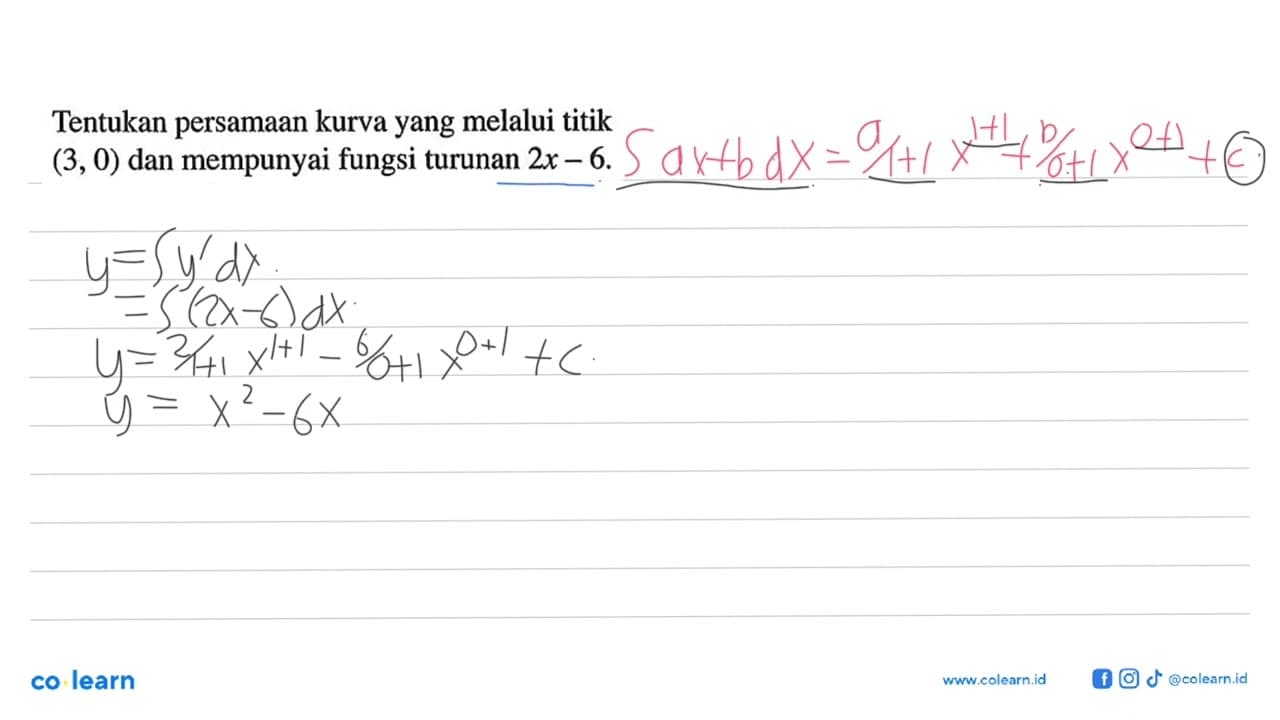 Tentukan persamaan kurva yang melalui titik
(3, 0) dan mempunyai fungsi turunan 2x – 6.
∫ ax+b dx = a/1+1 x^1+1 + b/0+1 x^0+1 + c
y = ∫ y' dx
= ∫ (2x-6) dx
y = 2/1+1 x^1+1 - 6/0+1 x^0+1 + c
y = x² - 6x
co learn
www.colearn.id
@colearn.id